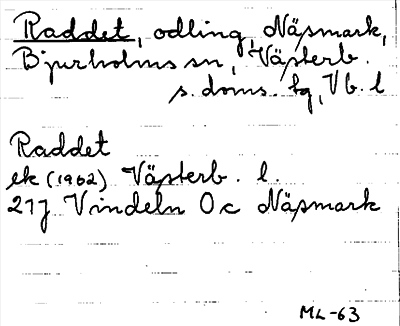 Raddet, odling, Näsmark,
Bjurholms sn, Västerb.
s. doms. tg, Vb. l
Raddet
ek (1962) Västerb. l.
21J Vindeln Oc Näsmark
ML-63